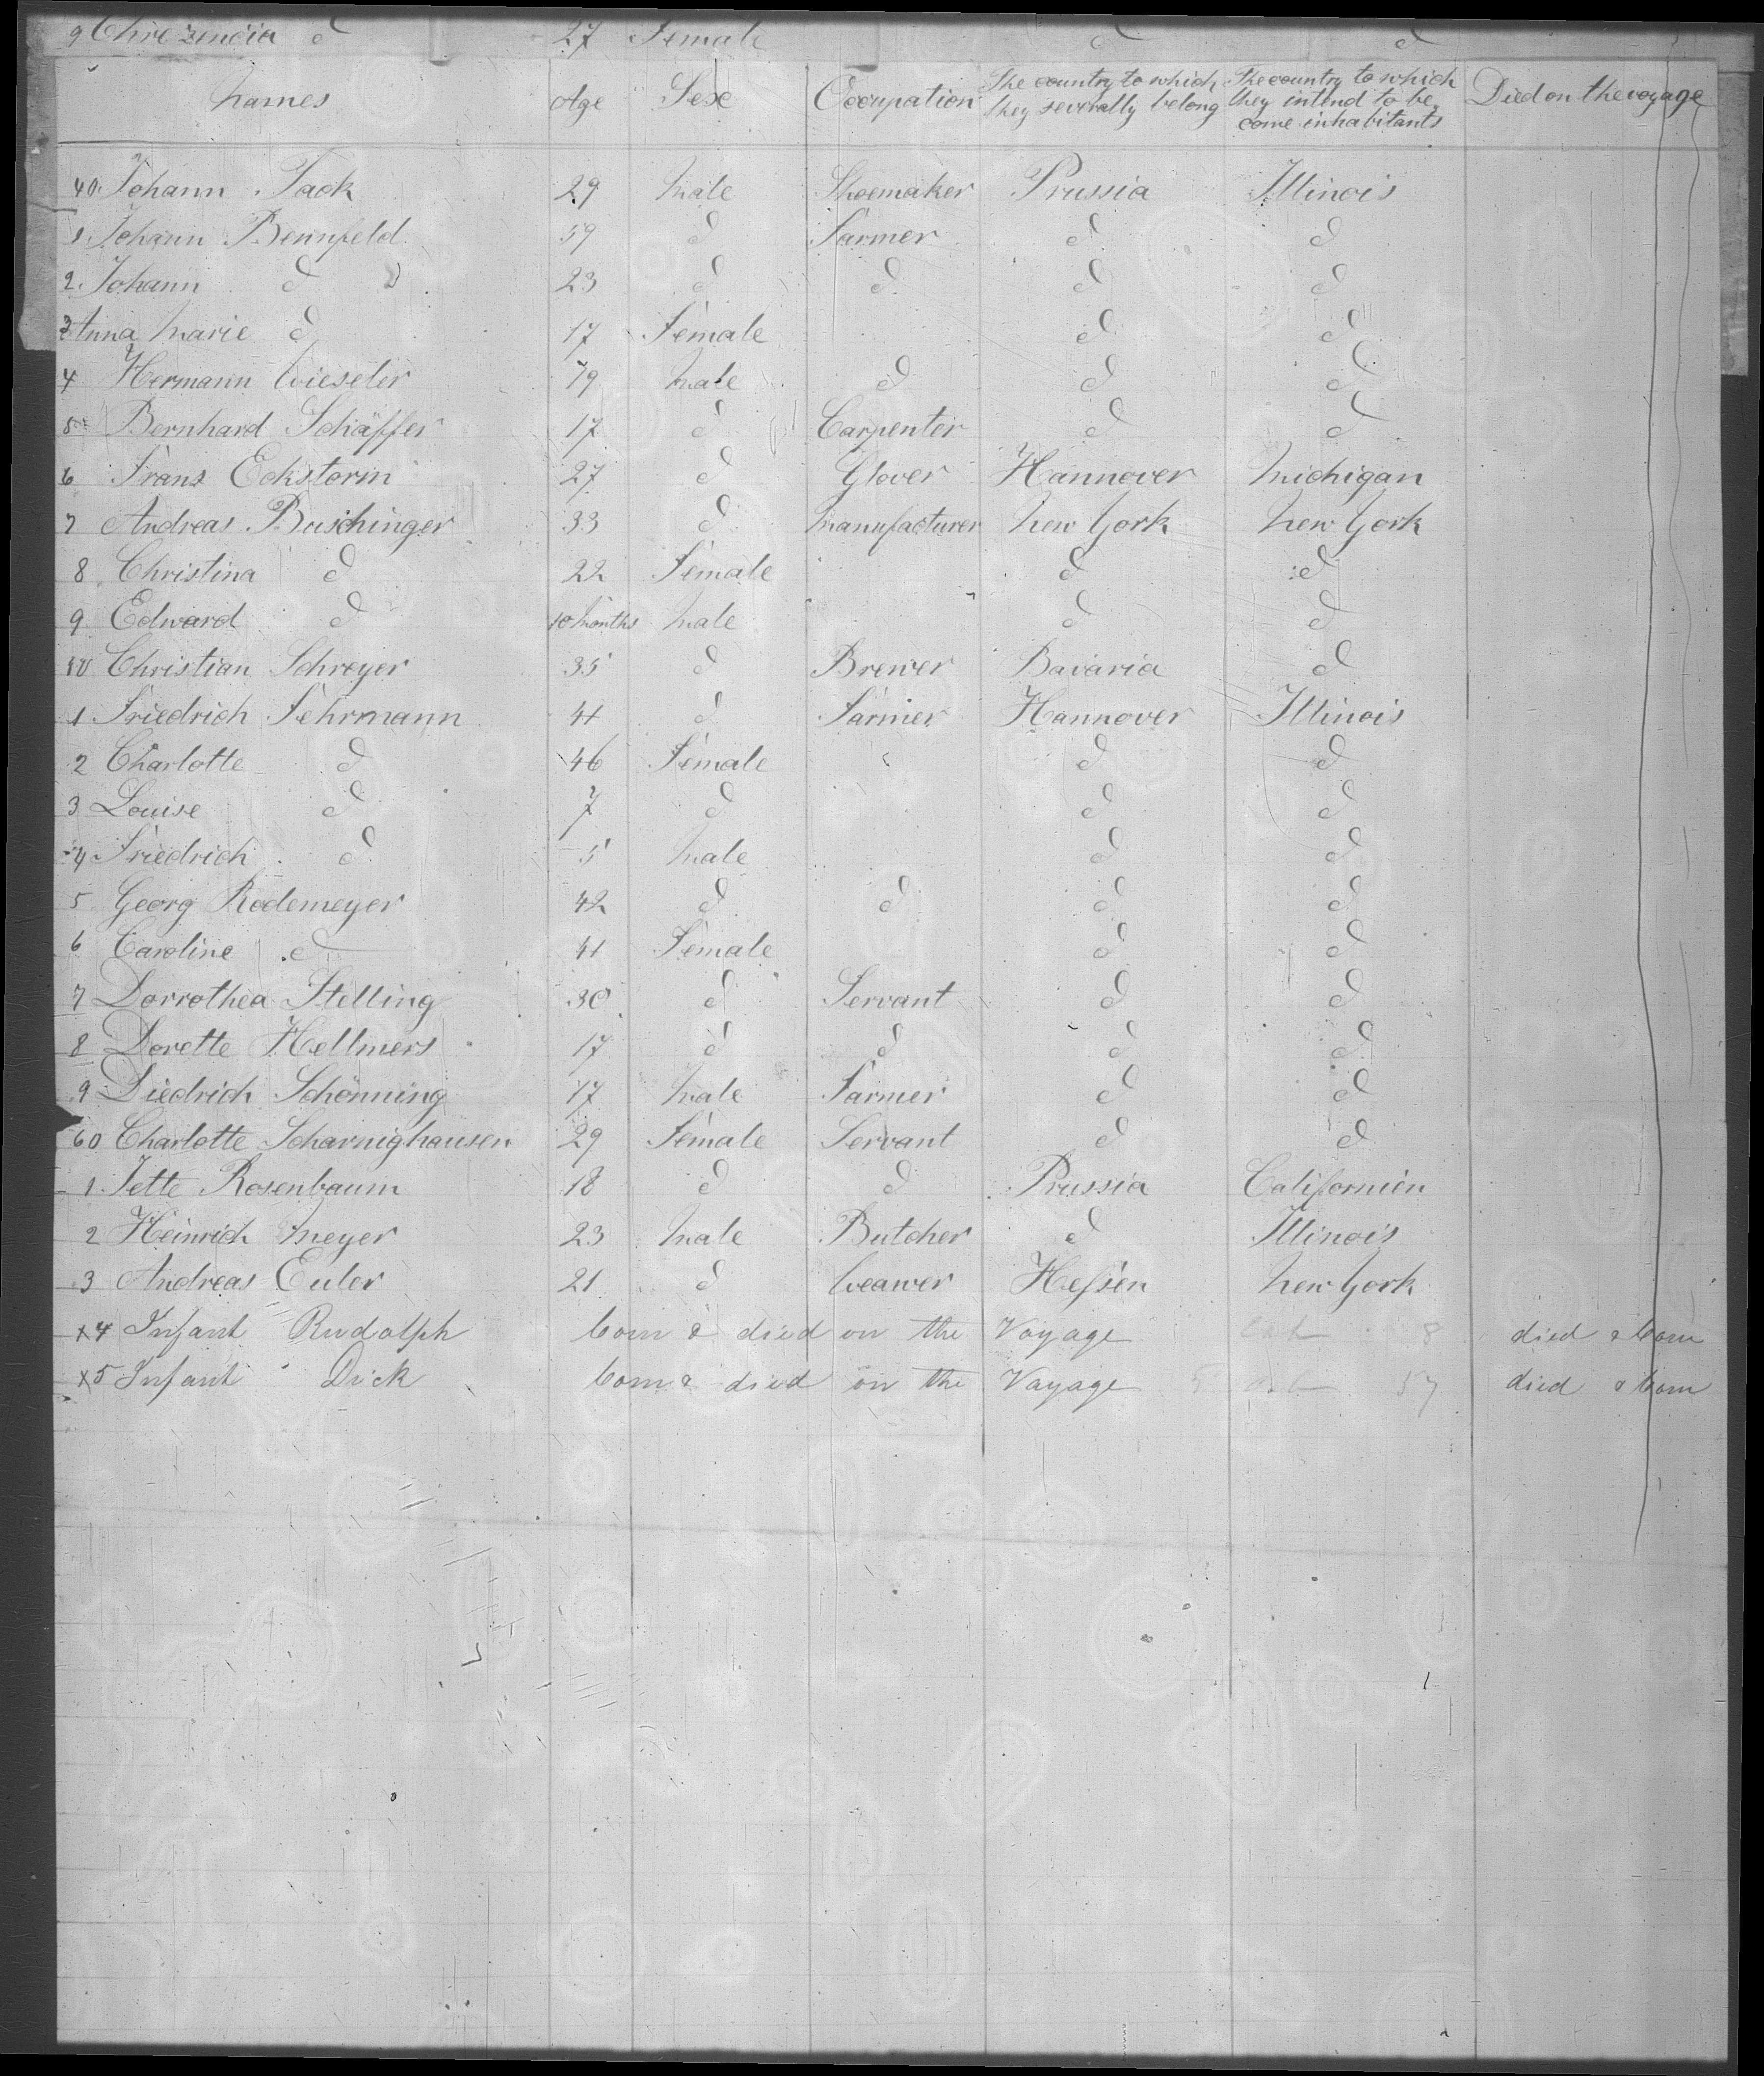 9 Chrezencia d 27 Female d d
Names Age Sex Occupation The country to which they severally belong The country to which they intend to become inhabitants Died on the voyage
40. Johann Tack 29 Male Shoemaker Prussia Illinois
1 Johann Bennfeld 59 d Farmer d d
2. Johann d 23 d d d d
3 Anna Marie d 17 Female d d
4 Hermann Wieseler 19 Male d d d
5 Bernhard Schäffer 17 d Carpenter d d
6 Frans Eckstorm 27 d Glover Hannover Michigan
7 Andreas Buschinger 33 d Manufacturer New York New York
8 Christina d 22 Female d d
9 Edward d 10 Months Male d d
50 Christian Schreyer 35 d Brewer Bavaria d
1 Friedrich Fehrmann 41 d Farmer Hannover Illinois
2 Charlotte d 46 Female d d
3 Louise d 7 d d d
4 Friedrich d 5 Male d d
5 Georg Rodemeyer 42 d d d d
6 Caroline d 41 Female d d
7 Dorrothea Stelling 30 d Servant d d
8 Dorette Hellmers 17 d d d d
9 Diedrich Schönning 17 Male Farmer d d
60 Charlotte Scharnighausen 29 Female Servant d d
1 Jette Rosenbaum 18 d d Prussia Californien
2 Heinrich Meyer 23 Male Butcher d Illinois
3 Andreas Euler 21 d Weawer Hessen New York
x4 Infant Rudolph born & died on the Voyage died & born
x5 Infant Dick born & died on the Voyage died & born